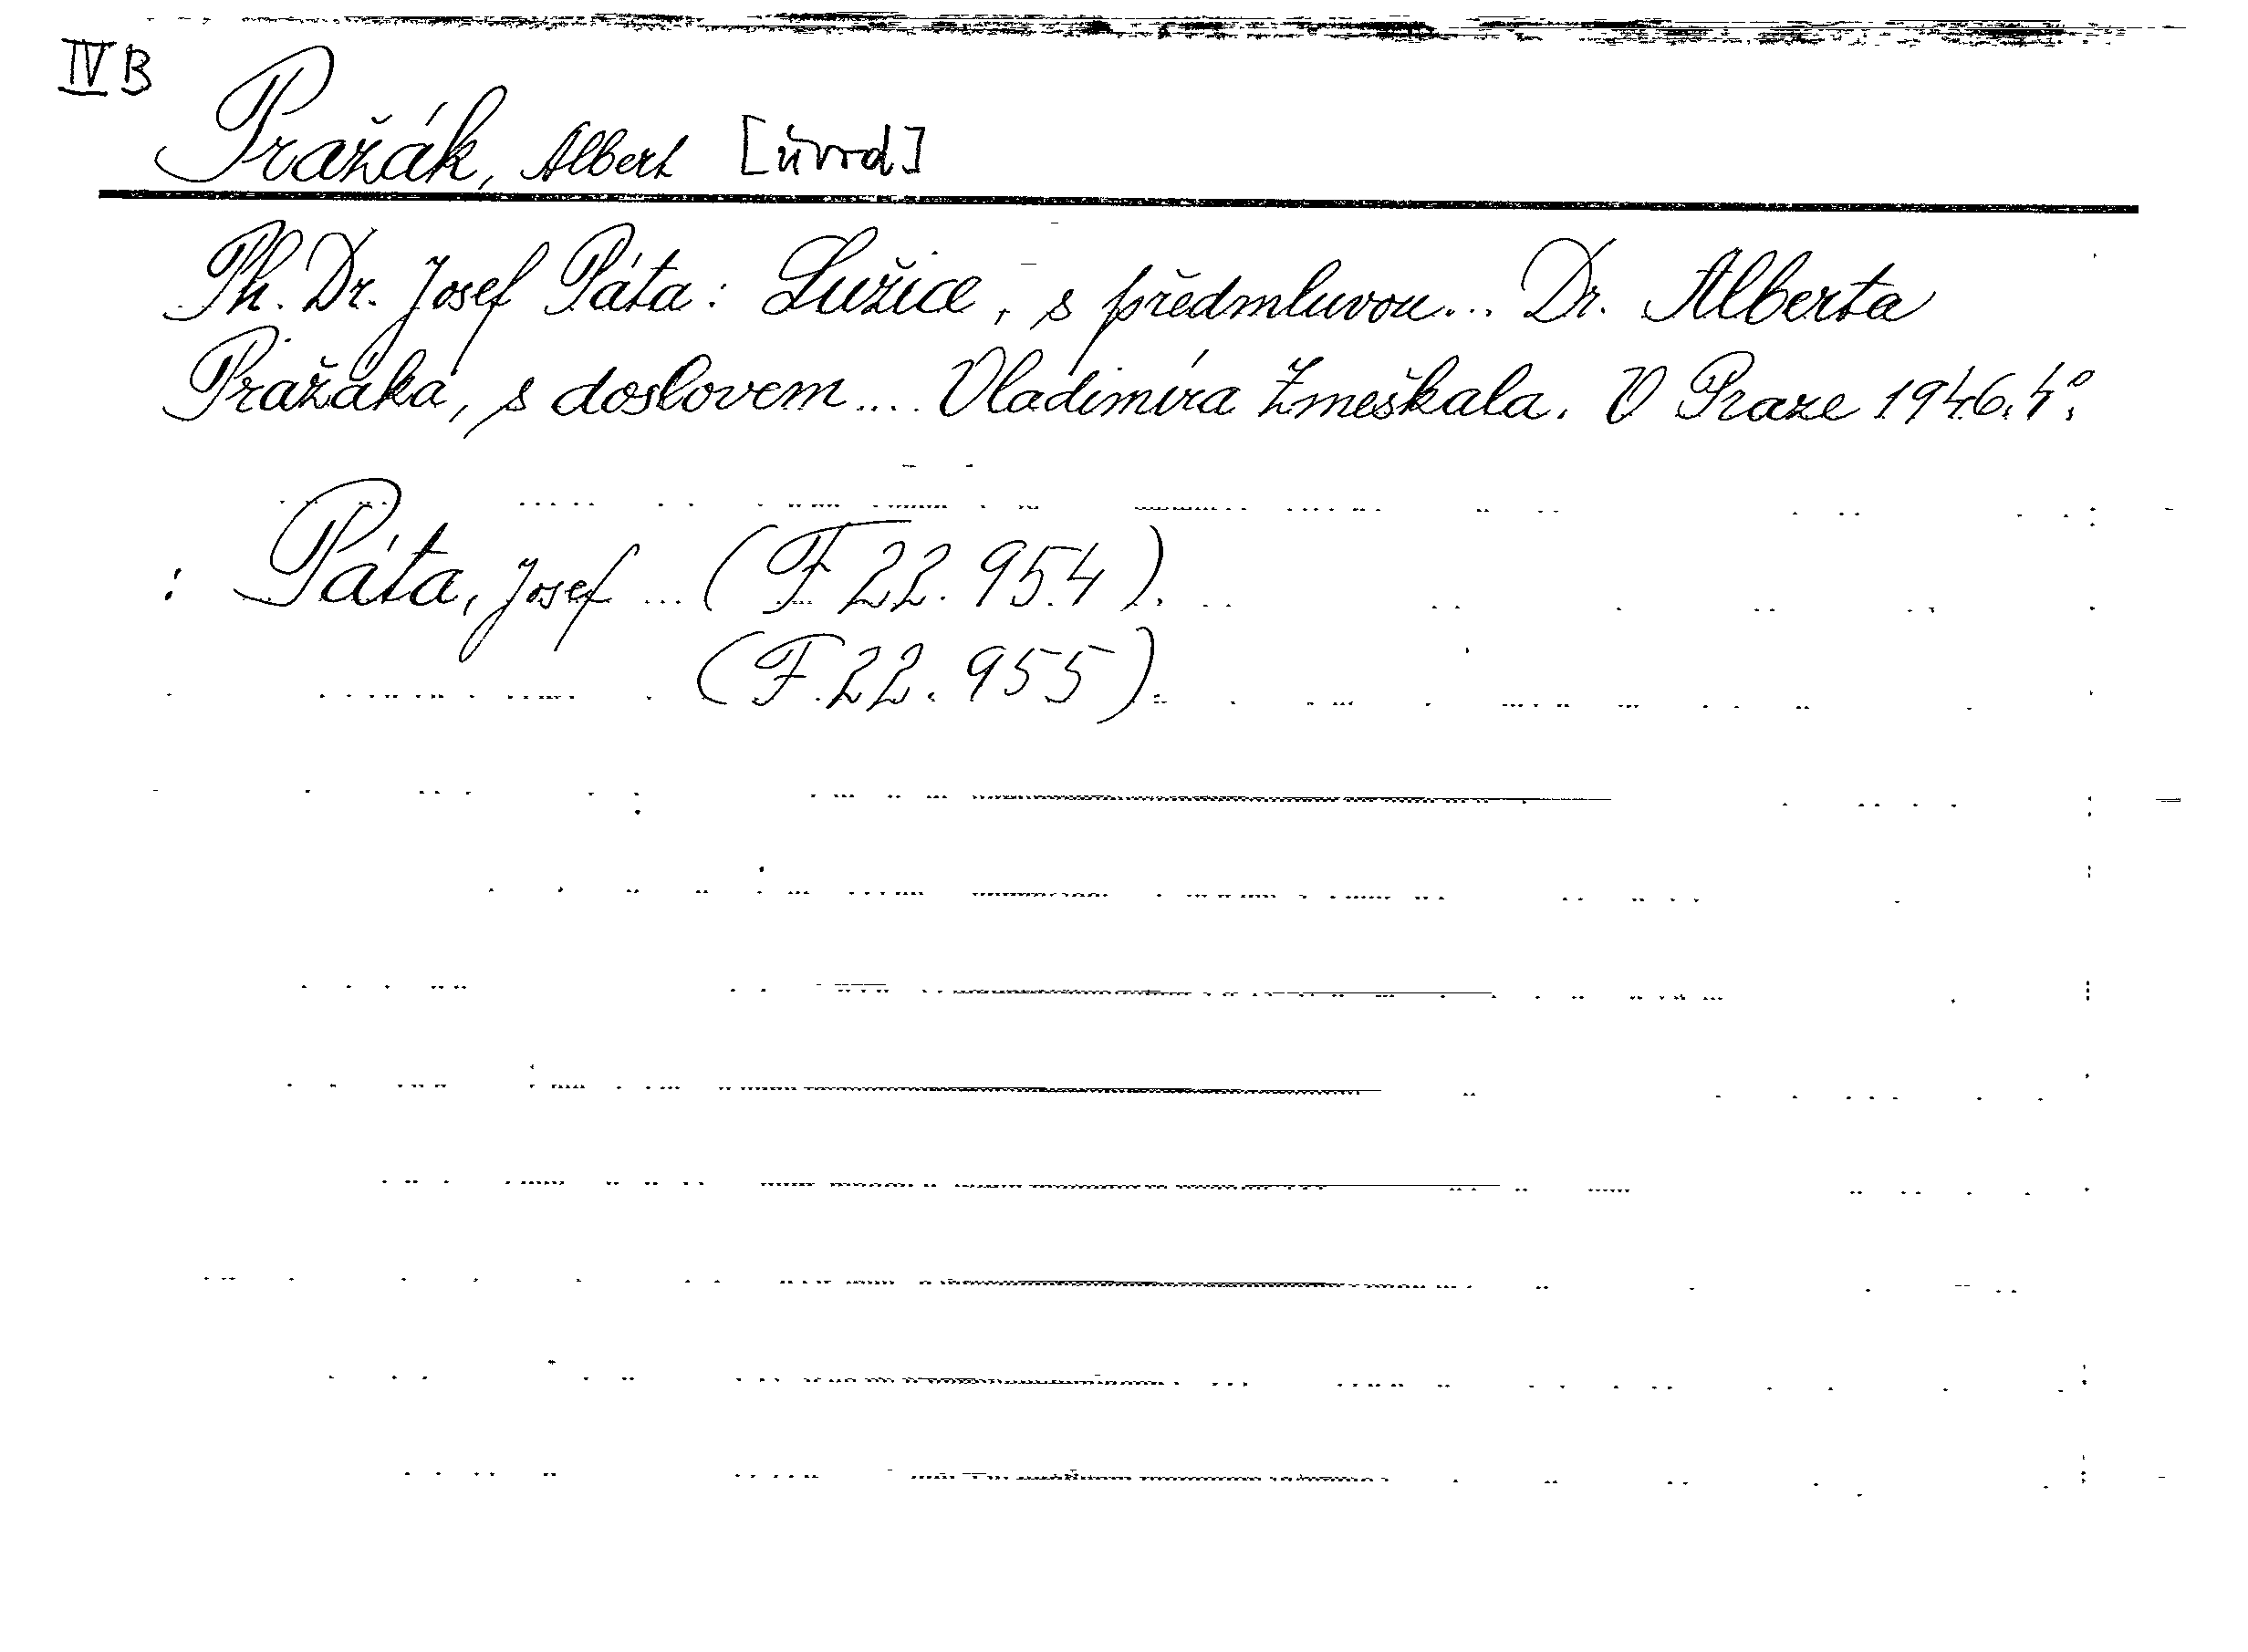 IV B
Pražák, Albert [úvod]
Ph. Dr. Josef Páta: Lužice, s předmluvou... Dr. Alberta
Pražáka, s doslovem.... Vladimíra Zmeškala. V Praze 1946. 4°.
: Páta, Josef ... (F 22.954).
(F. 22.955).